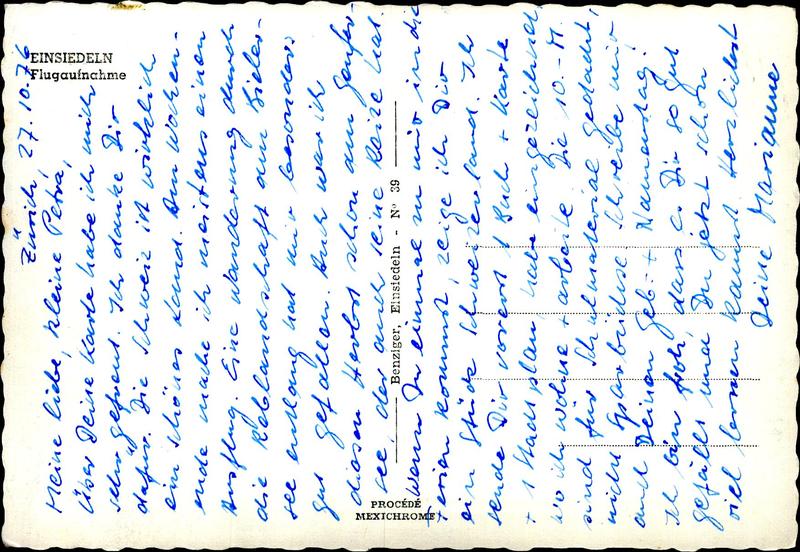 EINSIEDELN
Flugaufnahme
Zürich 27.10.76
Meine liebe, kleine Petra,
Über Deine Karte habe ich mich
sehr gefreut. Ich danke Dir
dafür. Die Schweiz ist wirklich
ein schönes Land. Am Wochen-
ende mache ich meistens einen
Ausflug. Eine Wanderung durch
die Reblandschaft dem Bieler-
see entlang hat mir besonders
gut gefallen. Auch war ich
diesen Herbst schon am Genfer-
see, der auch seine Reize hat.
Wenn Du einmal zu mir in die
Ferien kommst, zeige ich Dir
ein Stück Schweizerland. Ich
sende Dir vorerst 1 Buch + Karte
+ 1 Stadtplan, habe eingezeichnet,
wo ich wohne + arbeite. Die 10.-M.
sind für Schulmaterial gedacht,
nicht Sparbüchse. Schreibe mir
auch Deinen Geb.- + Namenstag!
Ich bin froh, dass es Dir so gut
gefällt und Du jetzt schon
viel lernen kannst. Herzlichst
Deine Marianne
Benziger, Einsiedeln - N° 39
PROCÉDÉ
MEXICHROME